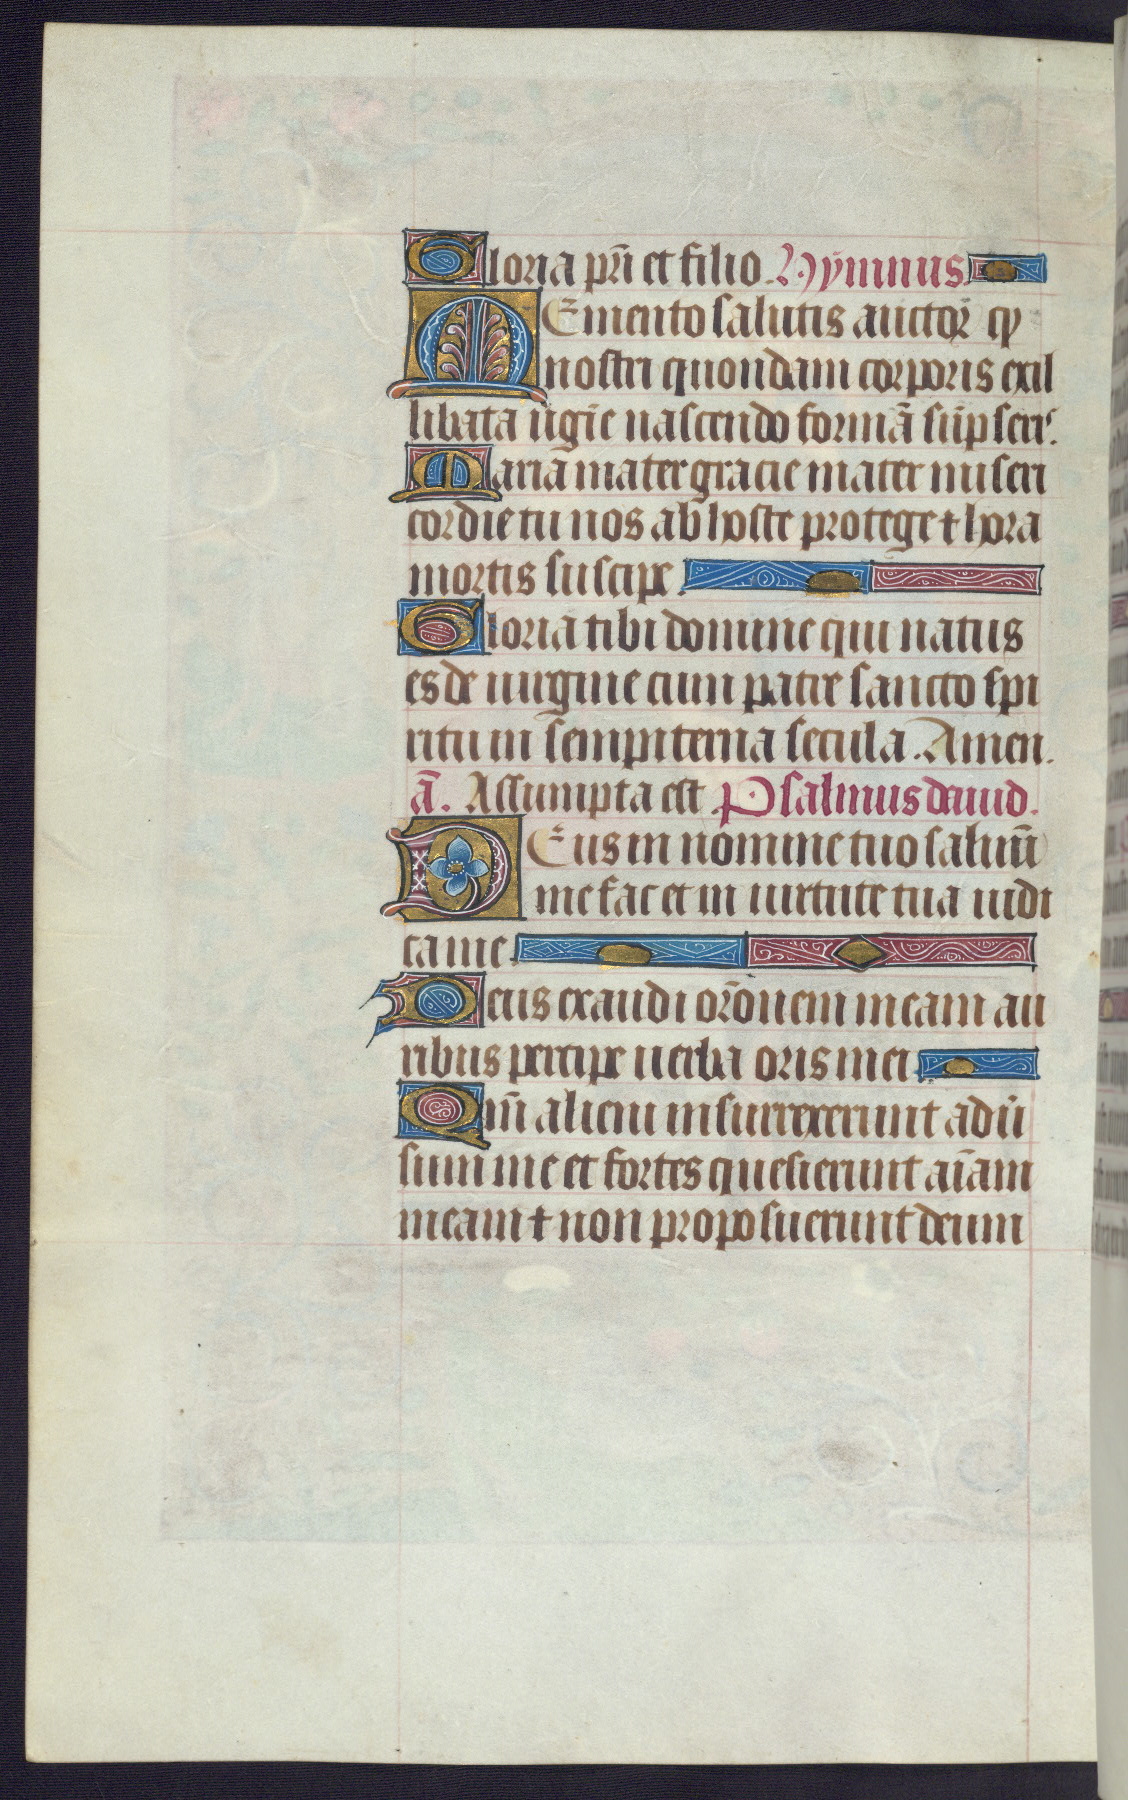 Gloria pri̅ et filio. Hymnus.
Memento salutis auctor q̄
nostri quondam corporis ex il
libata u̅gi̅e nascendo formā su̅pseris.
Maria mater gracie mater miseri
cordie tu nos ab hoste protege ⁊ hora
mortis suscipe.
Gloria tibi domine qui natus
es de uirgine cum patre sancto spi
ritu in sempiterna secula. Amen.
ā. Assumpta est. Psalmus dauid.
Deus in nomine tuo saluu̅
me fac et in uirtute tua iudi
ca me.
Deus exaudi oro̅nem meam au
ribus percipe uerba oris mei
Qm̅ alieni insurrexerunt adu̅
sum me et fortes quesierunt ai̅am
meam ⁊ non proposuerunt deum